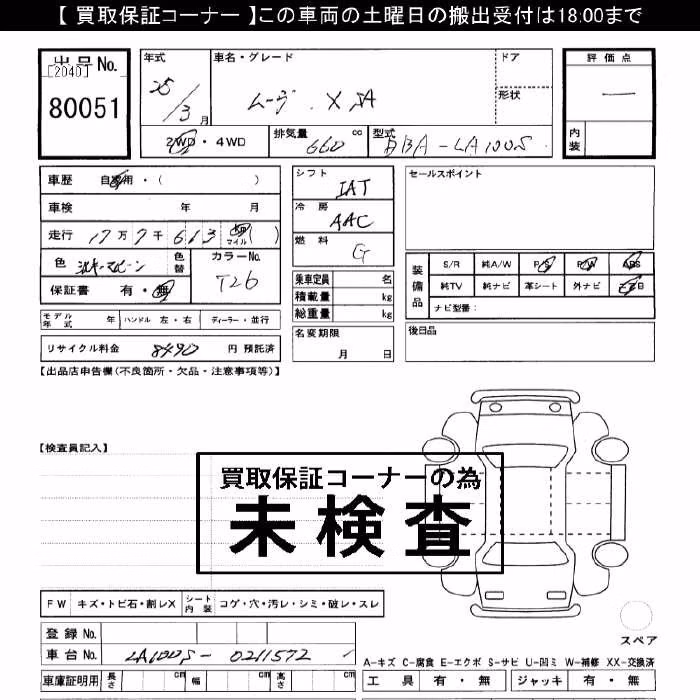 【 買取保証コーナー 】この車両の土曜日の搬出受付は18:00まで
出品No.
[2040]
80051
年式 25/3月
車名・グレード ムーヴ . X SA
ドア
形状
評価点 —
内装
2WD・4WD
排気量 660 cc
型式 DBA-LA100S
車歴 自家用・( )
車検 年 月
走行 17万7千613 km マイル ( )
色
色替
カラーNo. T26
保証書 有・無
モデル年式 年 ハンドル 左・右 ディーラー・並行
リサイクル料金 8490 円 預託済
シフト IAT
冷房 AAC
燃料 G
乗車定員 名
積載量 kg
総重量 kg
名変期限
月 日
セールスポイント
装備品
S/R 純A/W P/S P/W ABS
純TV 純ナビ 革シート 外ナビ エアB
ナビ型番:
後日品
【出品店申告欄(不良箇所・欠品・注意事項等)】
【検査員記入】
買取保証コーナーの為
未検査
FW キズ・トビ石・割レX シート内装 コゲ・穴・汚レ・シミ・破レ・スレ
スペア
登録No.
車台No. LA100S-0211572
A-キズ C-腐食 E-エクボ S-サビ U-凹ミ W-補修 XX-交換済
車庫証明用 長さ cm 幅 cm 高さ cm
工具 有・無 ジャッキ 有・無